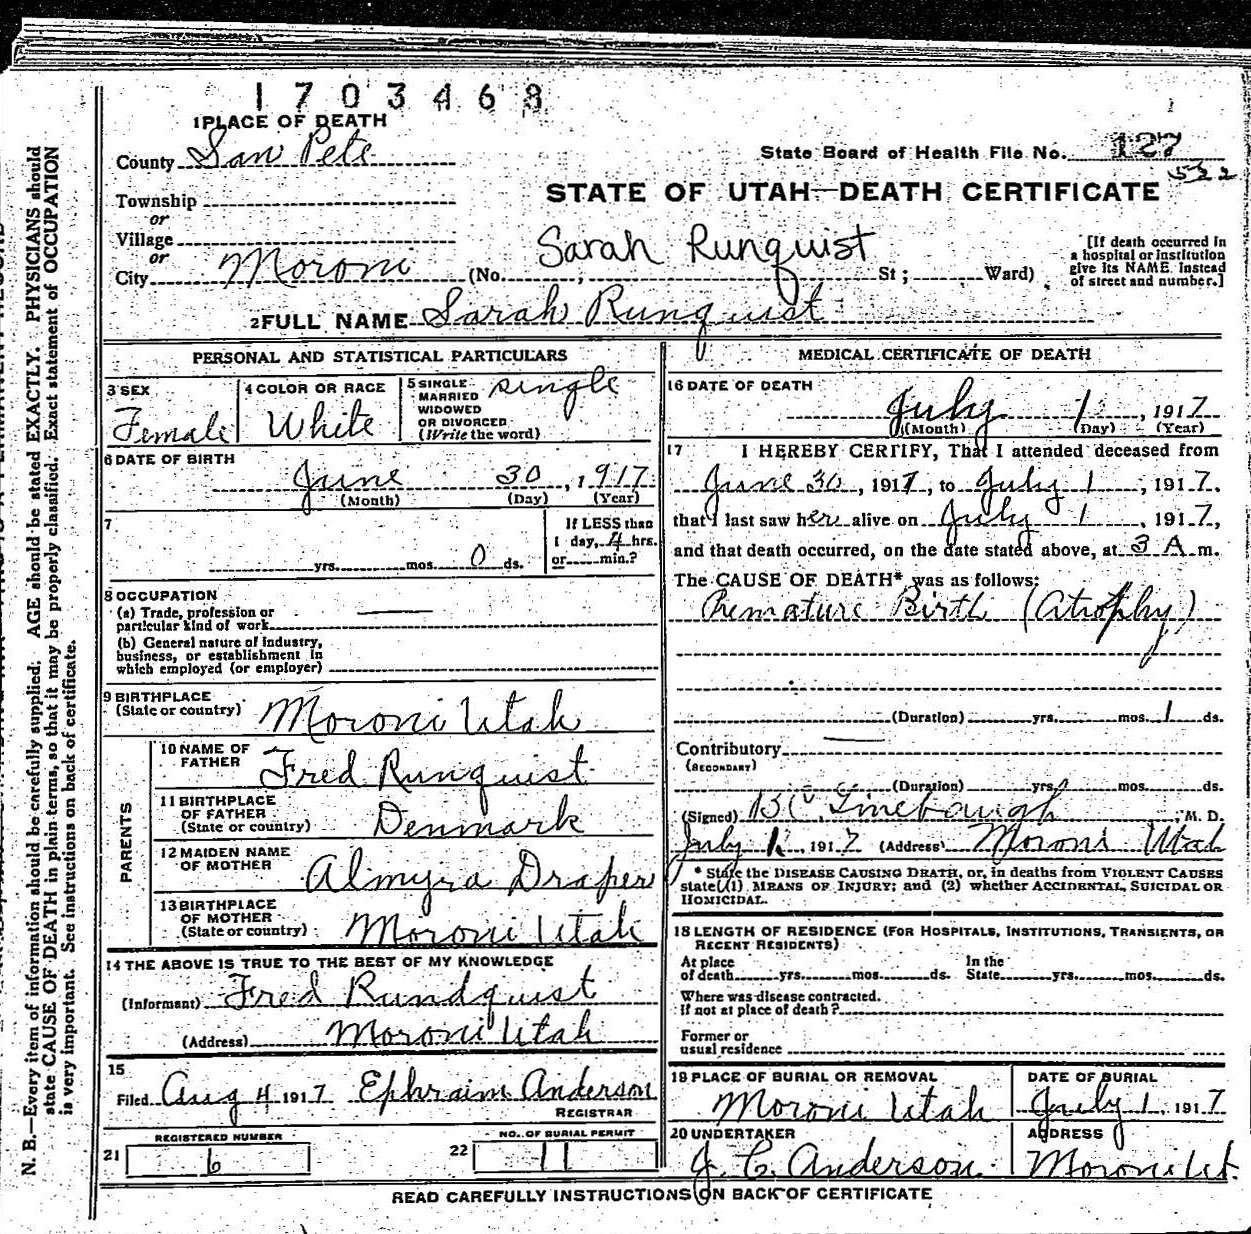 1703468
1 PLACE OF DEATH
County San Pete
State Board of Health File No. 127
522
STATE OF UTAH—DEATH CERTIFICATE
Township
or
Village
or
City Moroni (No. , St ; Ward)
Sarah Runquist
[If death occurred in
a hospital or institution
give its NAME instead
of street and number.]
2 FULL NAME Sarah Runquist
PERSONAL AND STATISTICAL PARTICULARS
3 SEX
Female
4 COLOR OR RACE
White
5 SINGLE
MARRIED
WIDOWED
OR DIVORCED
(Write the word)
single
6 DATE OF BIRTH
June 30, 1917
(Month) (Day) (Year)
7
yrs. mos. 0 ds.
If LESS than
1 day, 4 hrs.
or min.?
8 OCCUPATION
(a) Trade, profession or
particular kind of work
(b) General nature of industry,
business, or establishment in
which employed (or employer)
9 BIRTHPLACE
(State or country) Moroni Utah
PARENTS
10 NAME OF
FATHER Fred Runquist
11 BIRTHPLACE
OF FATHER
(State or country) Denmark
12 MAIDEN NAME
OF MOTHER Almyra Draper
13 BIRTHPLACE
OF MOTHER
(State or country) Moroni Utah
14 THE ABOVE IS TRUE TO THE BEST OF MY KNOWLEDGE
(Informant) Fred Rundquist
(Address) Moroni Utah
15
Filed Aug 4 1917 Ephraim Anderson
REGISTRAR
REGISTERED NUMBER
21 6
NO. OF BURIAL PERMIT
22 11
MEDICAL CERTIFICATE OF DEATH
16 DATE OF DEATH
July 1, 1917
(Month) (Day) (Year)
17 I HEREBY CERTIFY, That I attended deceased from
June 30, 1917, to July 1, 1917,
that I last saw her alive on July 1, 1917,
and that death occurred, on the date stated above, at 3 A m.
The CAUSE OF DEATH* was as follows:
Premature Birth (Atrophy)
(Duration) yrs. mos. 1 ds.
Contributory
(SECONDARY)
(Duration) yrs. mos. ds.
(Signed) B C Linebaugh, M. D.
July 1, 1917 (Address) Moroni Utah
* State the DISEASE CAUSING DEATH, or, in deaths from VIOLENT CAUSES
state (1) MEANS OF INJURY; and (2) whether ACCIDENTAL, SUICIDAL OR
HOMICIDAL.
18 LENGTH OF RESIDENCE (FOR HOSPITALS, INSTITUTIONS, TRANSIENTS, OR
RECENT RESIDENTS)
At place
of death yrs. mos. ds.
In the
State yrs. mos. ds.
Where was disease contracted.
if not at place of death?
Former or
usual residence
19 PLACE OF BURIAL OR REMOVAL
Moroni Utah
DATE OF BURIAL
July 1, 1917
20 UNDERTAKER
J. C. Anderson
ADDRESS
Moroni Ut.
READ CAREFULLY INSTRUCTIONS ON BACK OF CERTIFICATE
N. B.—Every item of information should be carefully supplied. AGE should be stated EXACTLY. PHYSICIANS should
state CAUSE OF DEATH in plain terms, so that it may be properly classified. Exact statement of OCCUPATION
is very important. See instructions on back of certificate.